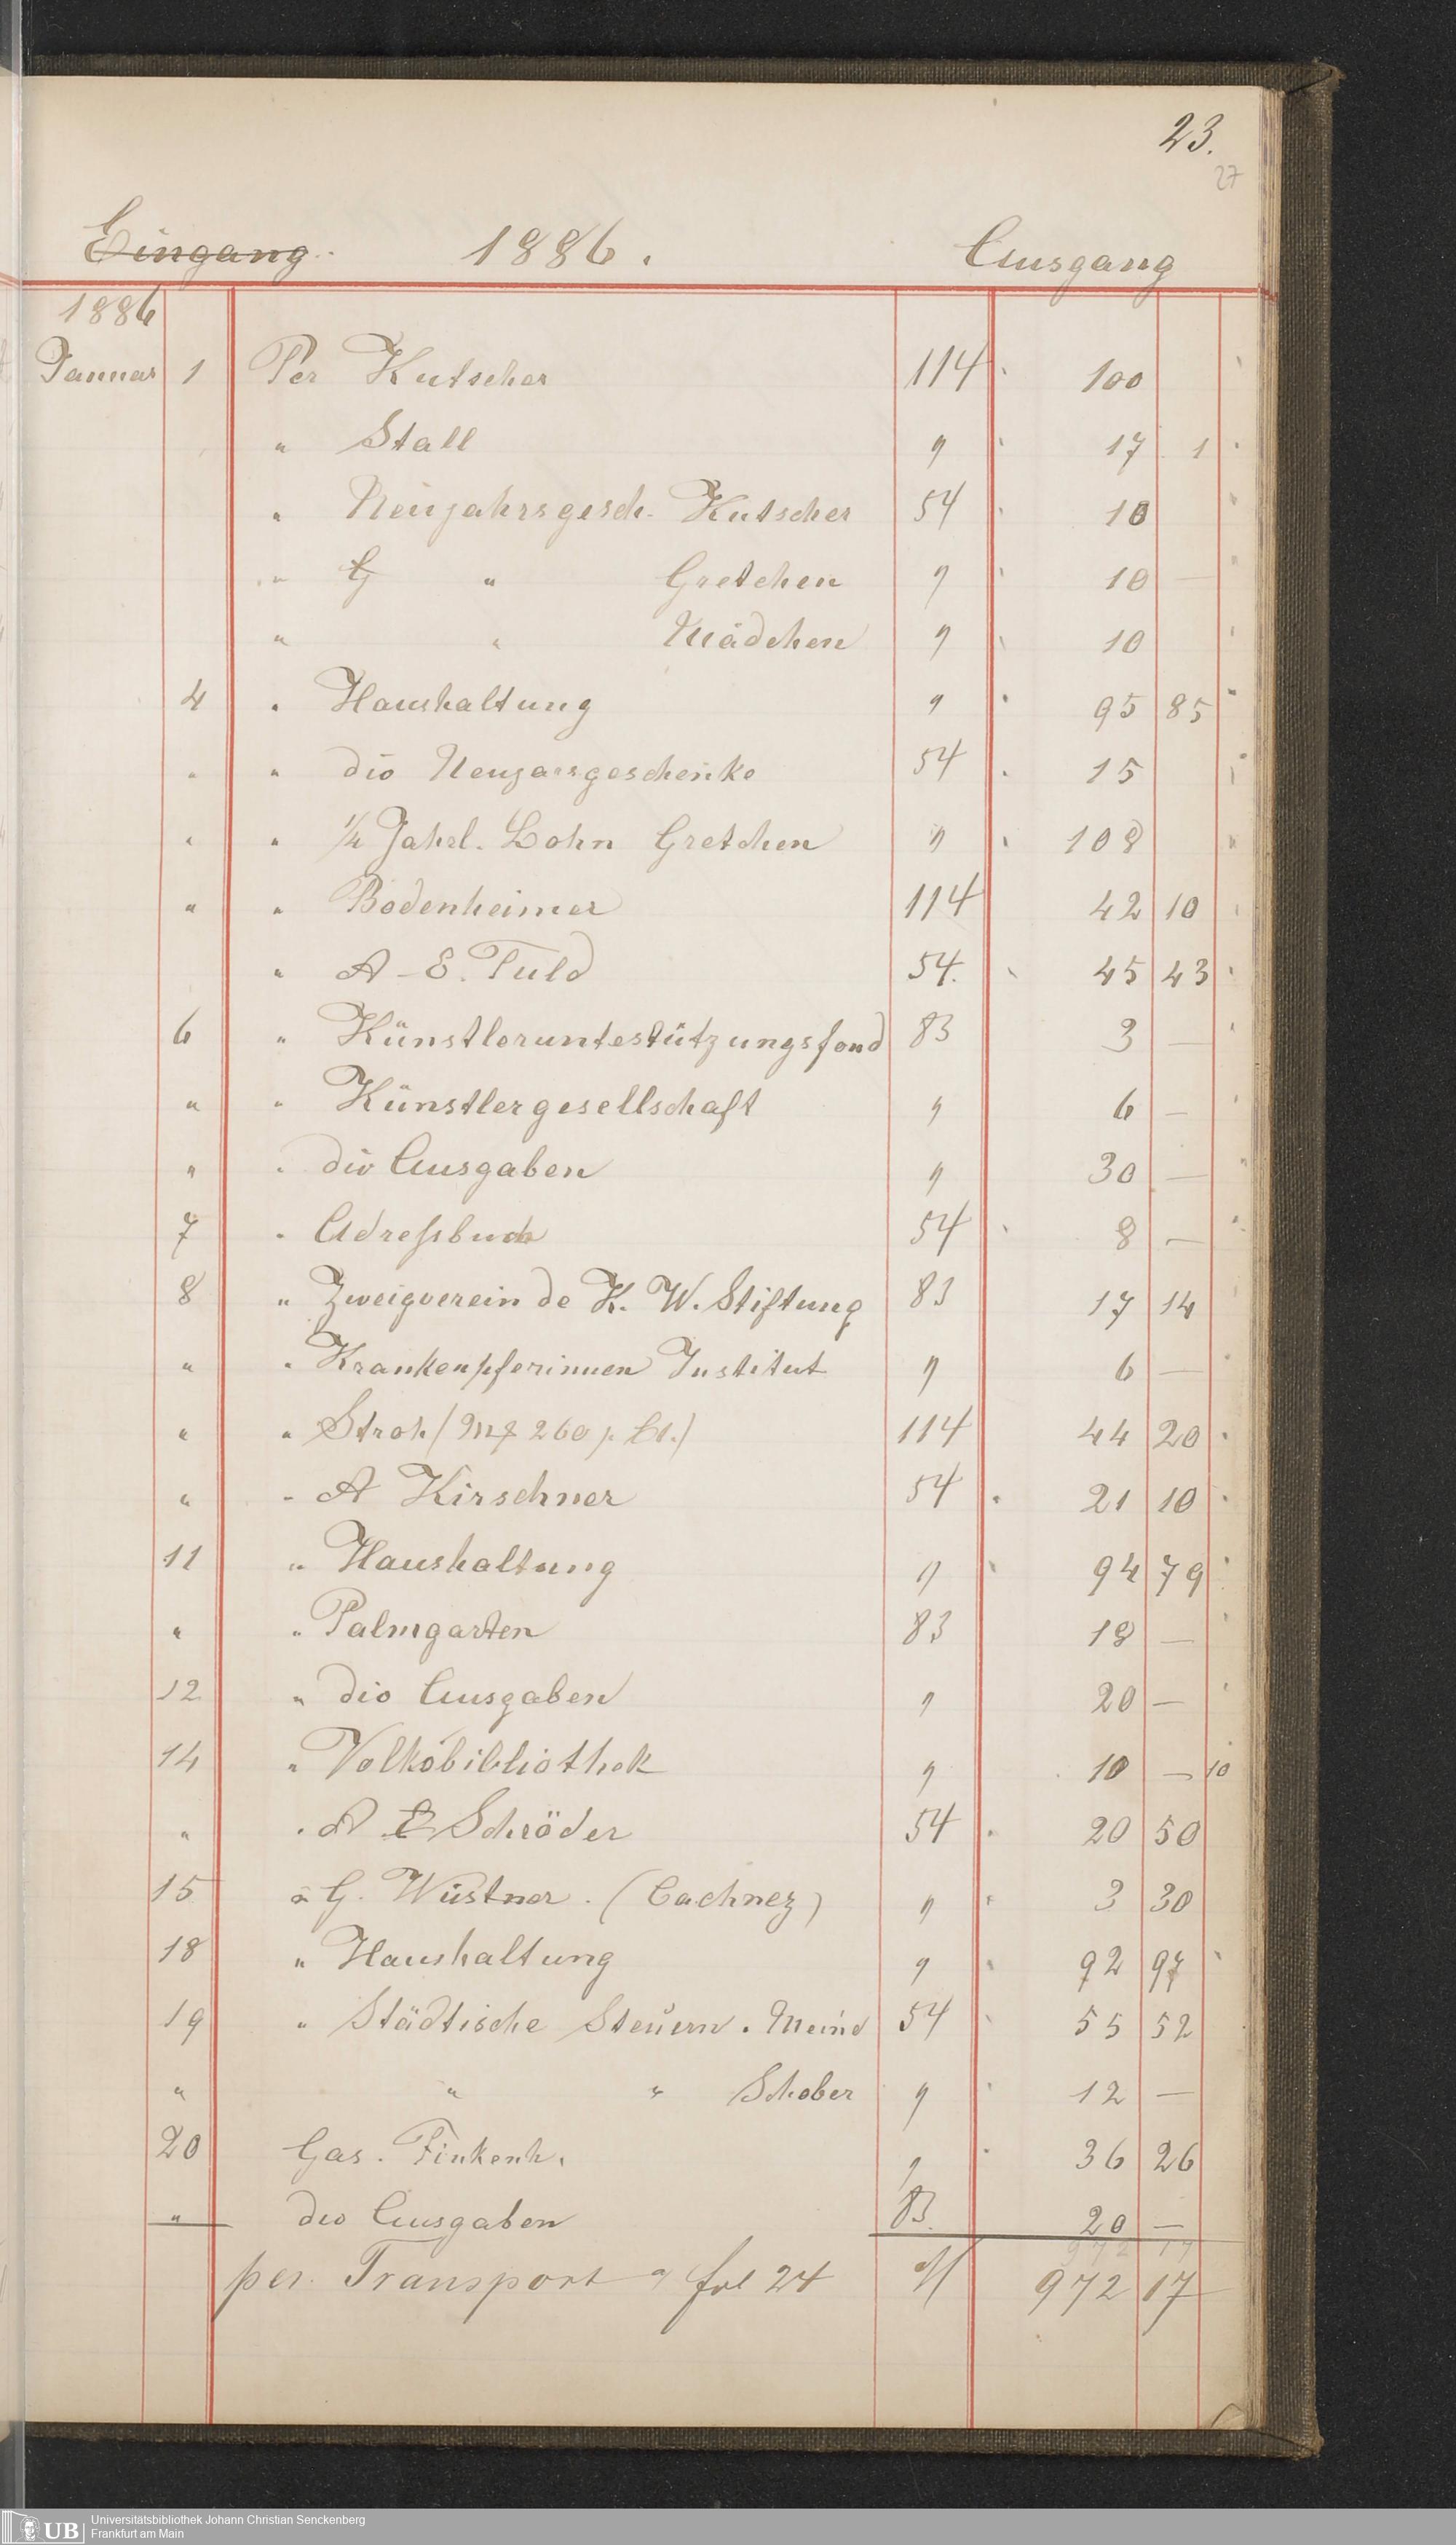 23.
27
Eingang 1886. Ausgang
1886
Januar 1 Per Kutscher 114 100
" Stall " 17 1
" Neujahrsgesch. Kutscher 54 10
" " Gretchen " 10 —
" " Mädchen " 10
4 " Haushaltung " 95 85
" " div Neujarsgeschenke 54 15
" " 1/4 Jahrl. Lohn Gretchen " 108
" " Bodenheimer 114 42 10
" A-E. Fuld 54. 45 43
6 " Künstleruntestützungsfond 83 3 —
" " Künstlergesellschaft " 6 —
" " div Ausgaben " 30 —
7 " Adreßbuch 54 8 —
8 " Zweigverein de K. W. Stiftung 83 17 14
" " Krankenpferinnen Institut " 6 —
" " Stroh 260 p. Ct.) 114 44 20
" " A Kirschner 54 21 10
11 " Haushaltung " 94 79
" " Palmgarten 83 18 —
12 " div Ausgaben " 20 —
14 " Volksbibliothek " 10 — 10
" " A Schröder 54 20 50
15 " G. Wüstner. (Cachnez) " 3 30
18 " Haushaltung " 92 97
19 " Städtische Steuern. Meine 54 55 52
" " " Schober " 12 —
20 Gas. Finkenh. " 36 26
" div Ausgaben 83. 20 —
972 17
per. Transport a fol 24 972 17
UB
Universitätsbibliothek Johann Christian Senckenberg
Frankfurt am Main